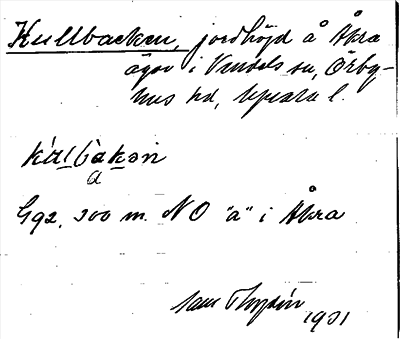 Kullbacken, jordhöjd å Åkra
ägor i Vendels sn, Örby-
hus hd, Upsala l.
kúlbàkən
a
Gg2, 300 m. NO "a" i Åkra
1931